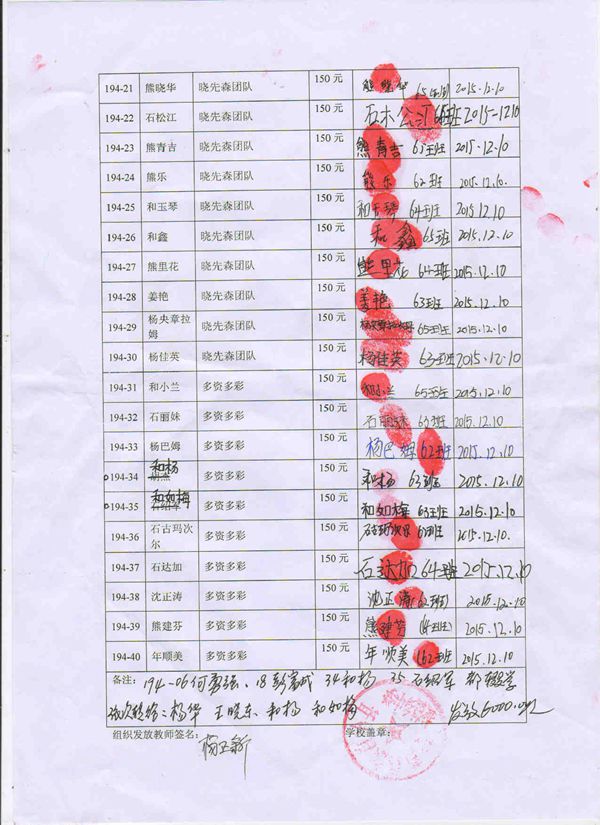 194-21 熊晓华 晓先森团队 150 元 熊晓华 65班 2015.12.10
194-22 石松江 晓先森团队 150 元 石松江 65班 2015-1210
194-23 熊青吉 晓先森团队 150 元 熊青吉 65班 2015.12.10
194-24 熊乐 晓先森团队 150 元 熊乐 62班 2015.12.10.
194-25 和玉琴 晓先森团队 150 元 和玉琴 64班 2015.12.10
194-26 和鑫 晓先森团队 150 元 和鑫 65班 2015.12.10
194-27 熊里花 晓先森团队 150 元 熊里花 64班 2015.12.10
194-28 姜艳 晓先森团队 150 元 姜艳 63班 2015.12.10
194-29 杨央章拉姆 晓先森团队 150 元 65班 2015.12.10
194-30 杨佳英 晓先森团队 150 元 杨佳英 63班 2015.12.10
194-31 和小兰 多资多彩 150 元 和小兰 65班 2015.12.10
194-32 石丽妹 多资多彩 150 元 石丽妹 63班 2015.12.10
194-33 杨巴姆 多资多彩 150 元 杨巴姆 62班 2015.12.10
194-34 和杨 多资多彩 150 元 和杨 63班 2015.12.10
194-35 和如梅 多资多彩 150 元 和如梅 63班 2015.12.10
194-36 石古玛次尔 多资多彩 150 元 2015.12.10.
194-37 石达加 多资多彩 150 元 石达加 64班 2015.12.10
194-38 沈正涛 多资多彩 150 元 沈正涛 62班 2015.12.10
194-39 熊建芬 多资多彩 150 元 熊建芬 64班 2015.12.10
194-40 年顺美 多资多彩 150 元 年顺美 62班 2015.12.10
备注: 194-06何勇强、18彭 34和杨 35石绍军 都辍学
依次转给:杨华 王晓东 和杨 和如梅 发放6000.元
组织发放教师签名: 学校盖章: